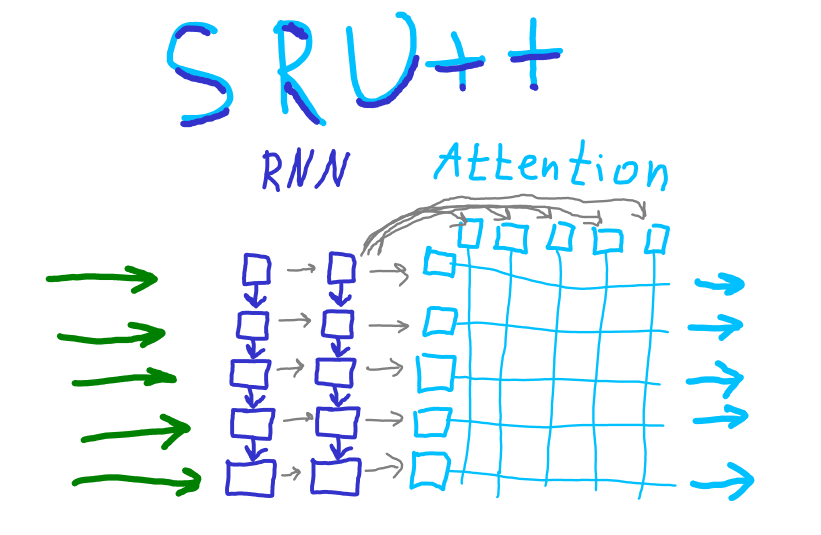 SRU++
RNN
Attention